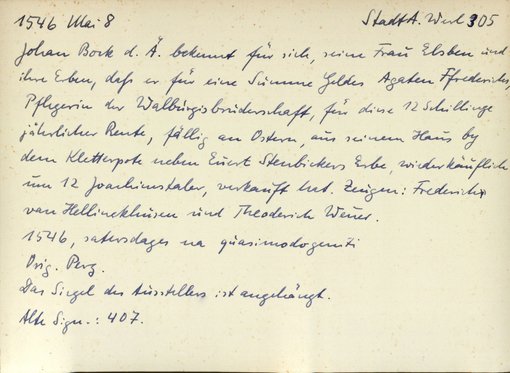 1546 Mai 8 StadtA. Werl 305
Johan Bork d. Ä. bekennt für sich, seine Frau Elsben und
ihre Erben, daß er für eine Summe Geldes Agaten Ffrederichs,
Pflegerin der Walburgisbruderschaft, für diese 12 Schillinge
jährlicher Rente, fällig an Ostern, aus seinem Haus by
dem Kletterpote neben Evert Stenbickers Erbe, wiederkäuflich
um 12 Joachimstaler, verkauft hat. Zeugen: Frederich
van Hellinckhusen und Theoderich Wever.
1546, satersdages na quasimodogeniti
Orig. Perg.
Das Siegel des Ausstellers ist angehängt.
Alte Sign.: 407.